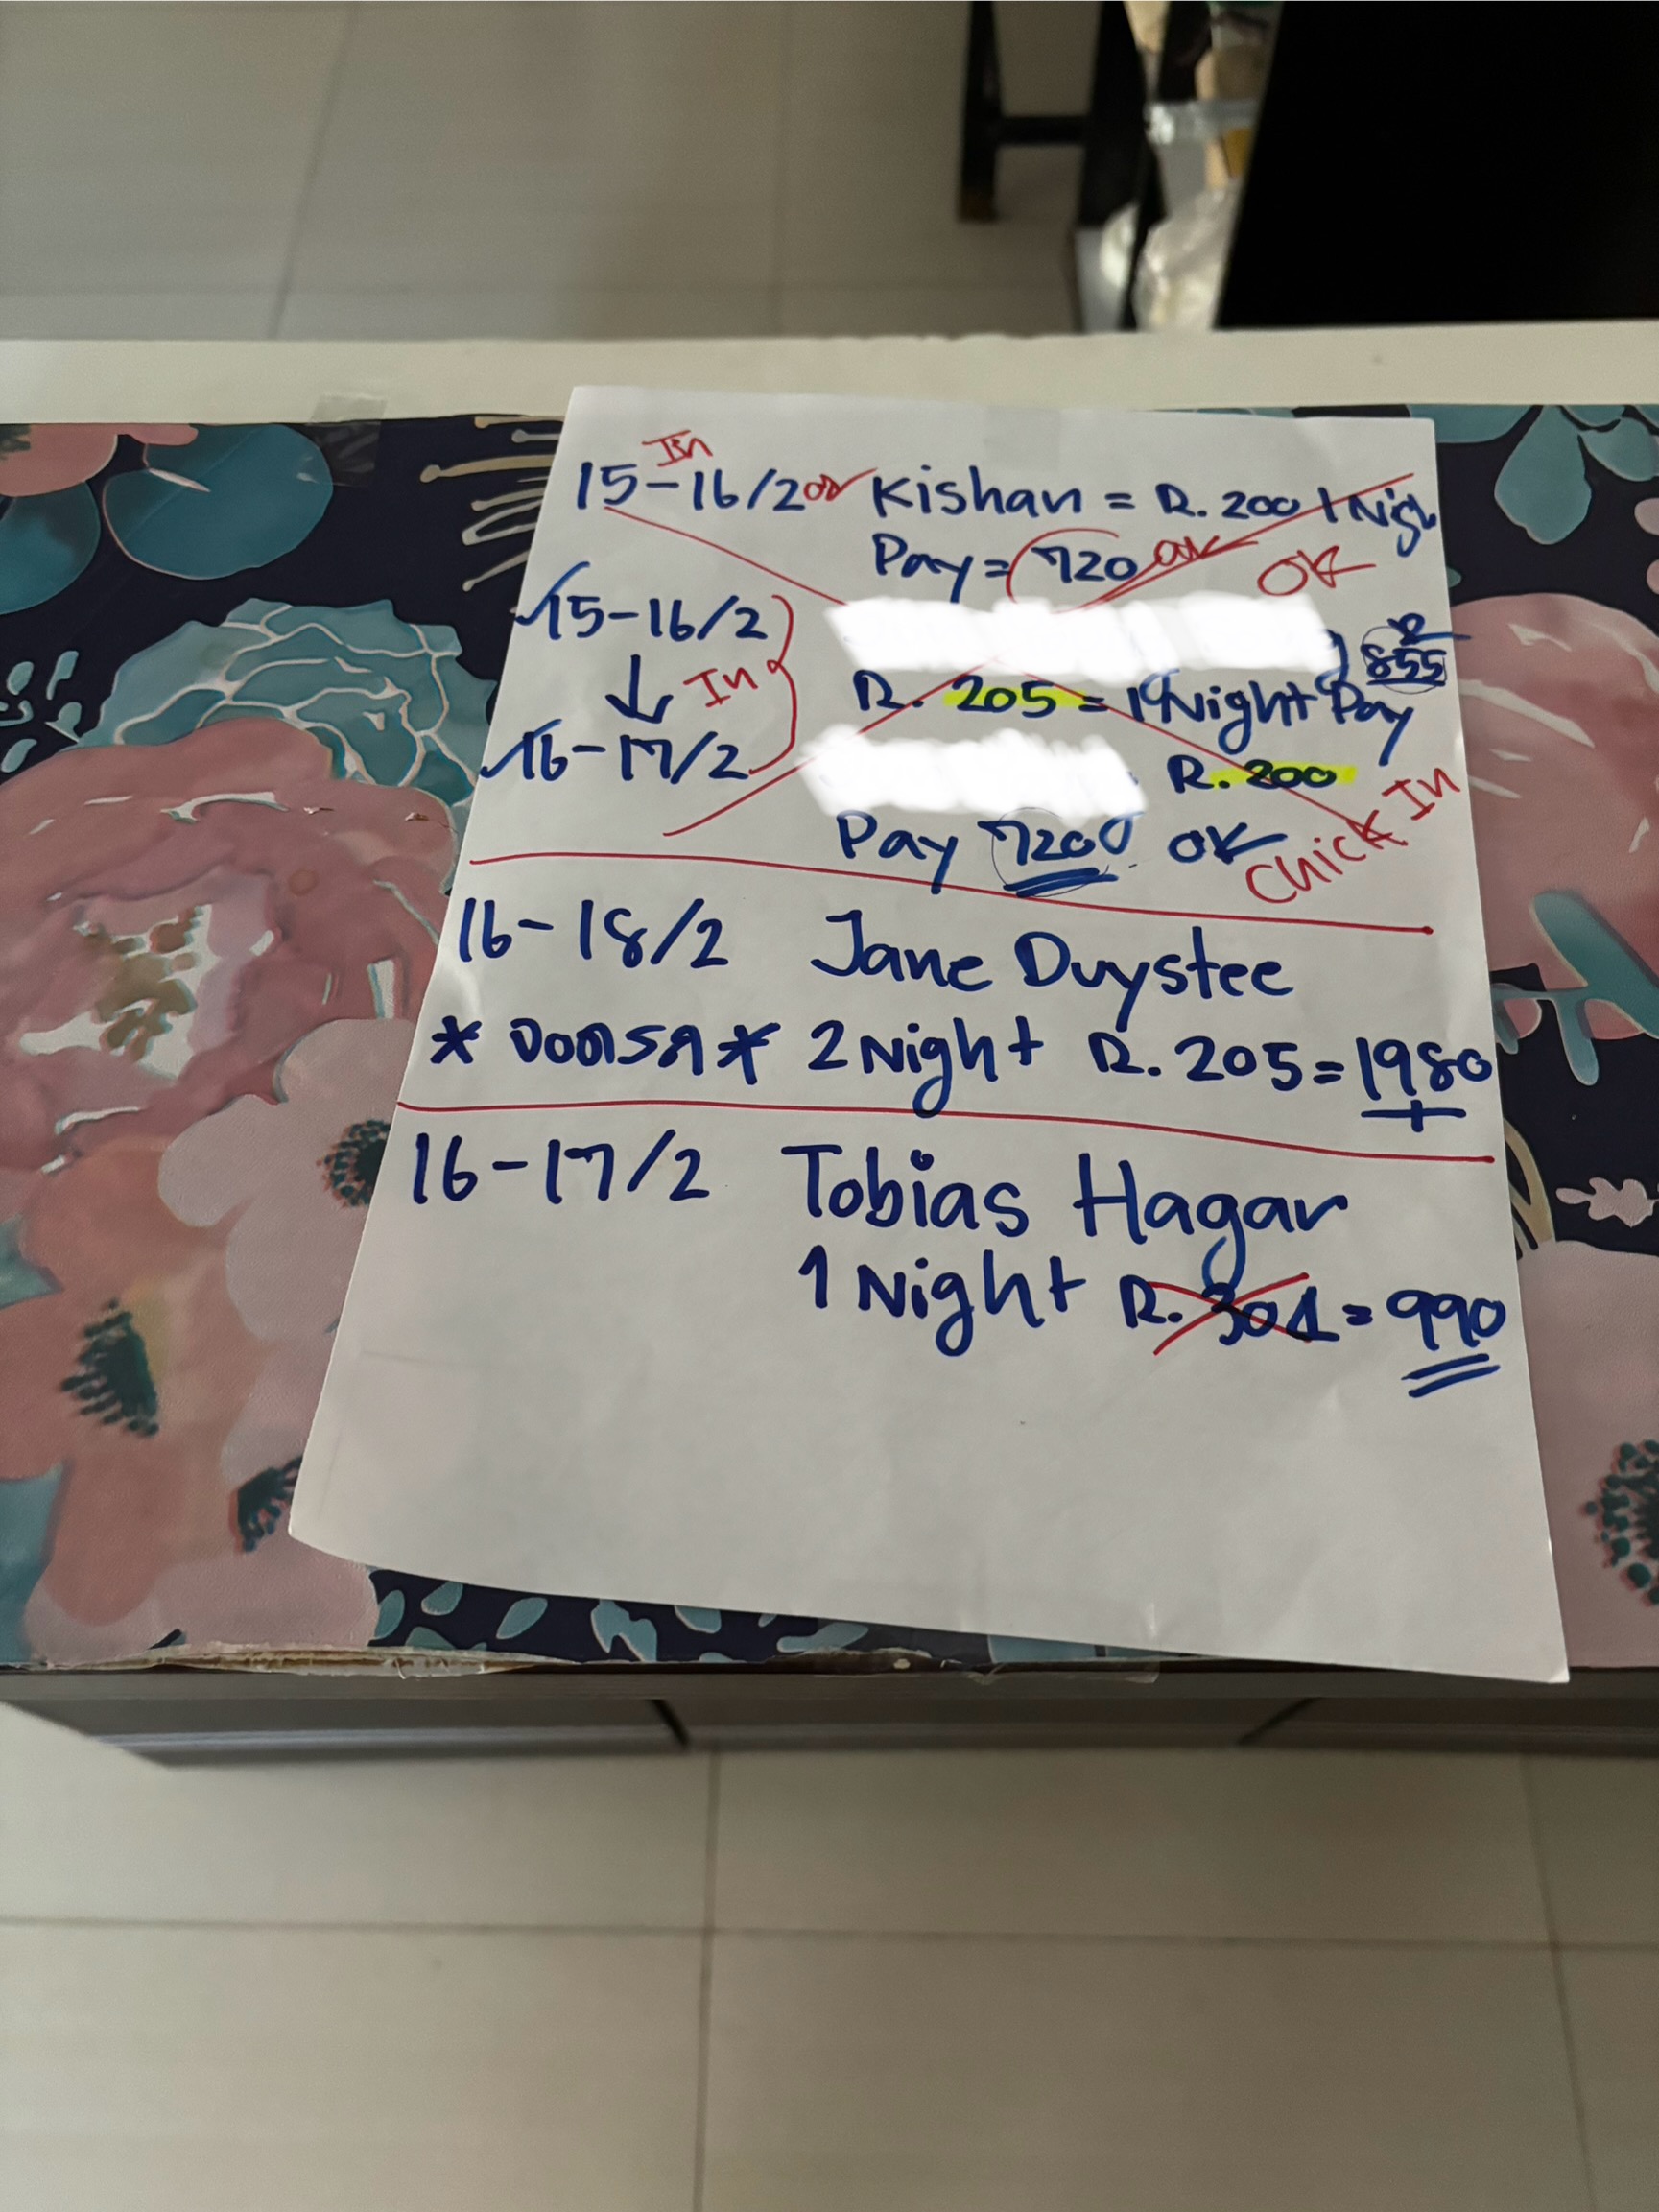 In
15-16/2 or Kishan = R. 200 1 Nigh
Pay = 720 ok OK
15-16/2
R. 205 = 1 Night Pay 855
In
16-17/2 R. 200
Pay 720 OK Chick In
16-18/2 Jane Duystee
* จองตรง * 2 Night R. 205 = 1980
16-17/2 Tobias Hagar
1 Night R. 301 = 990